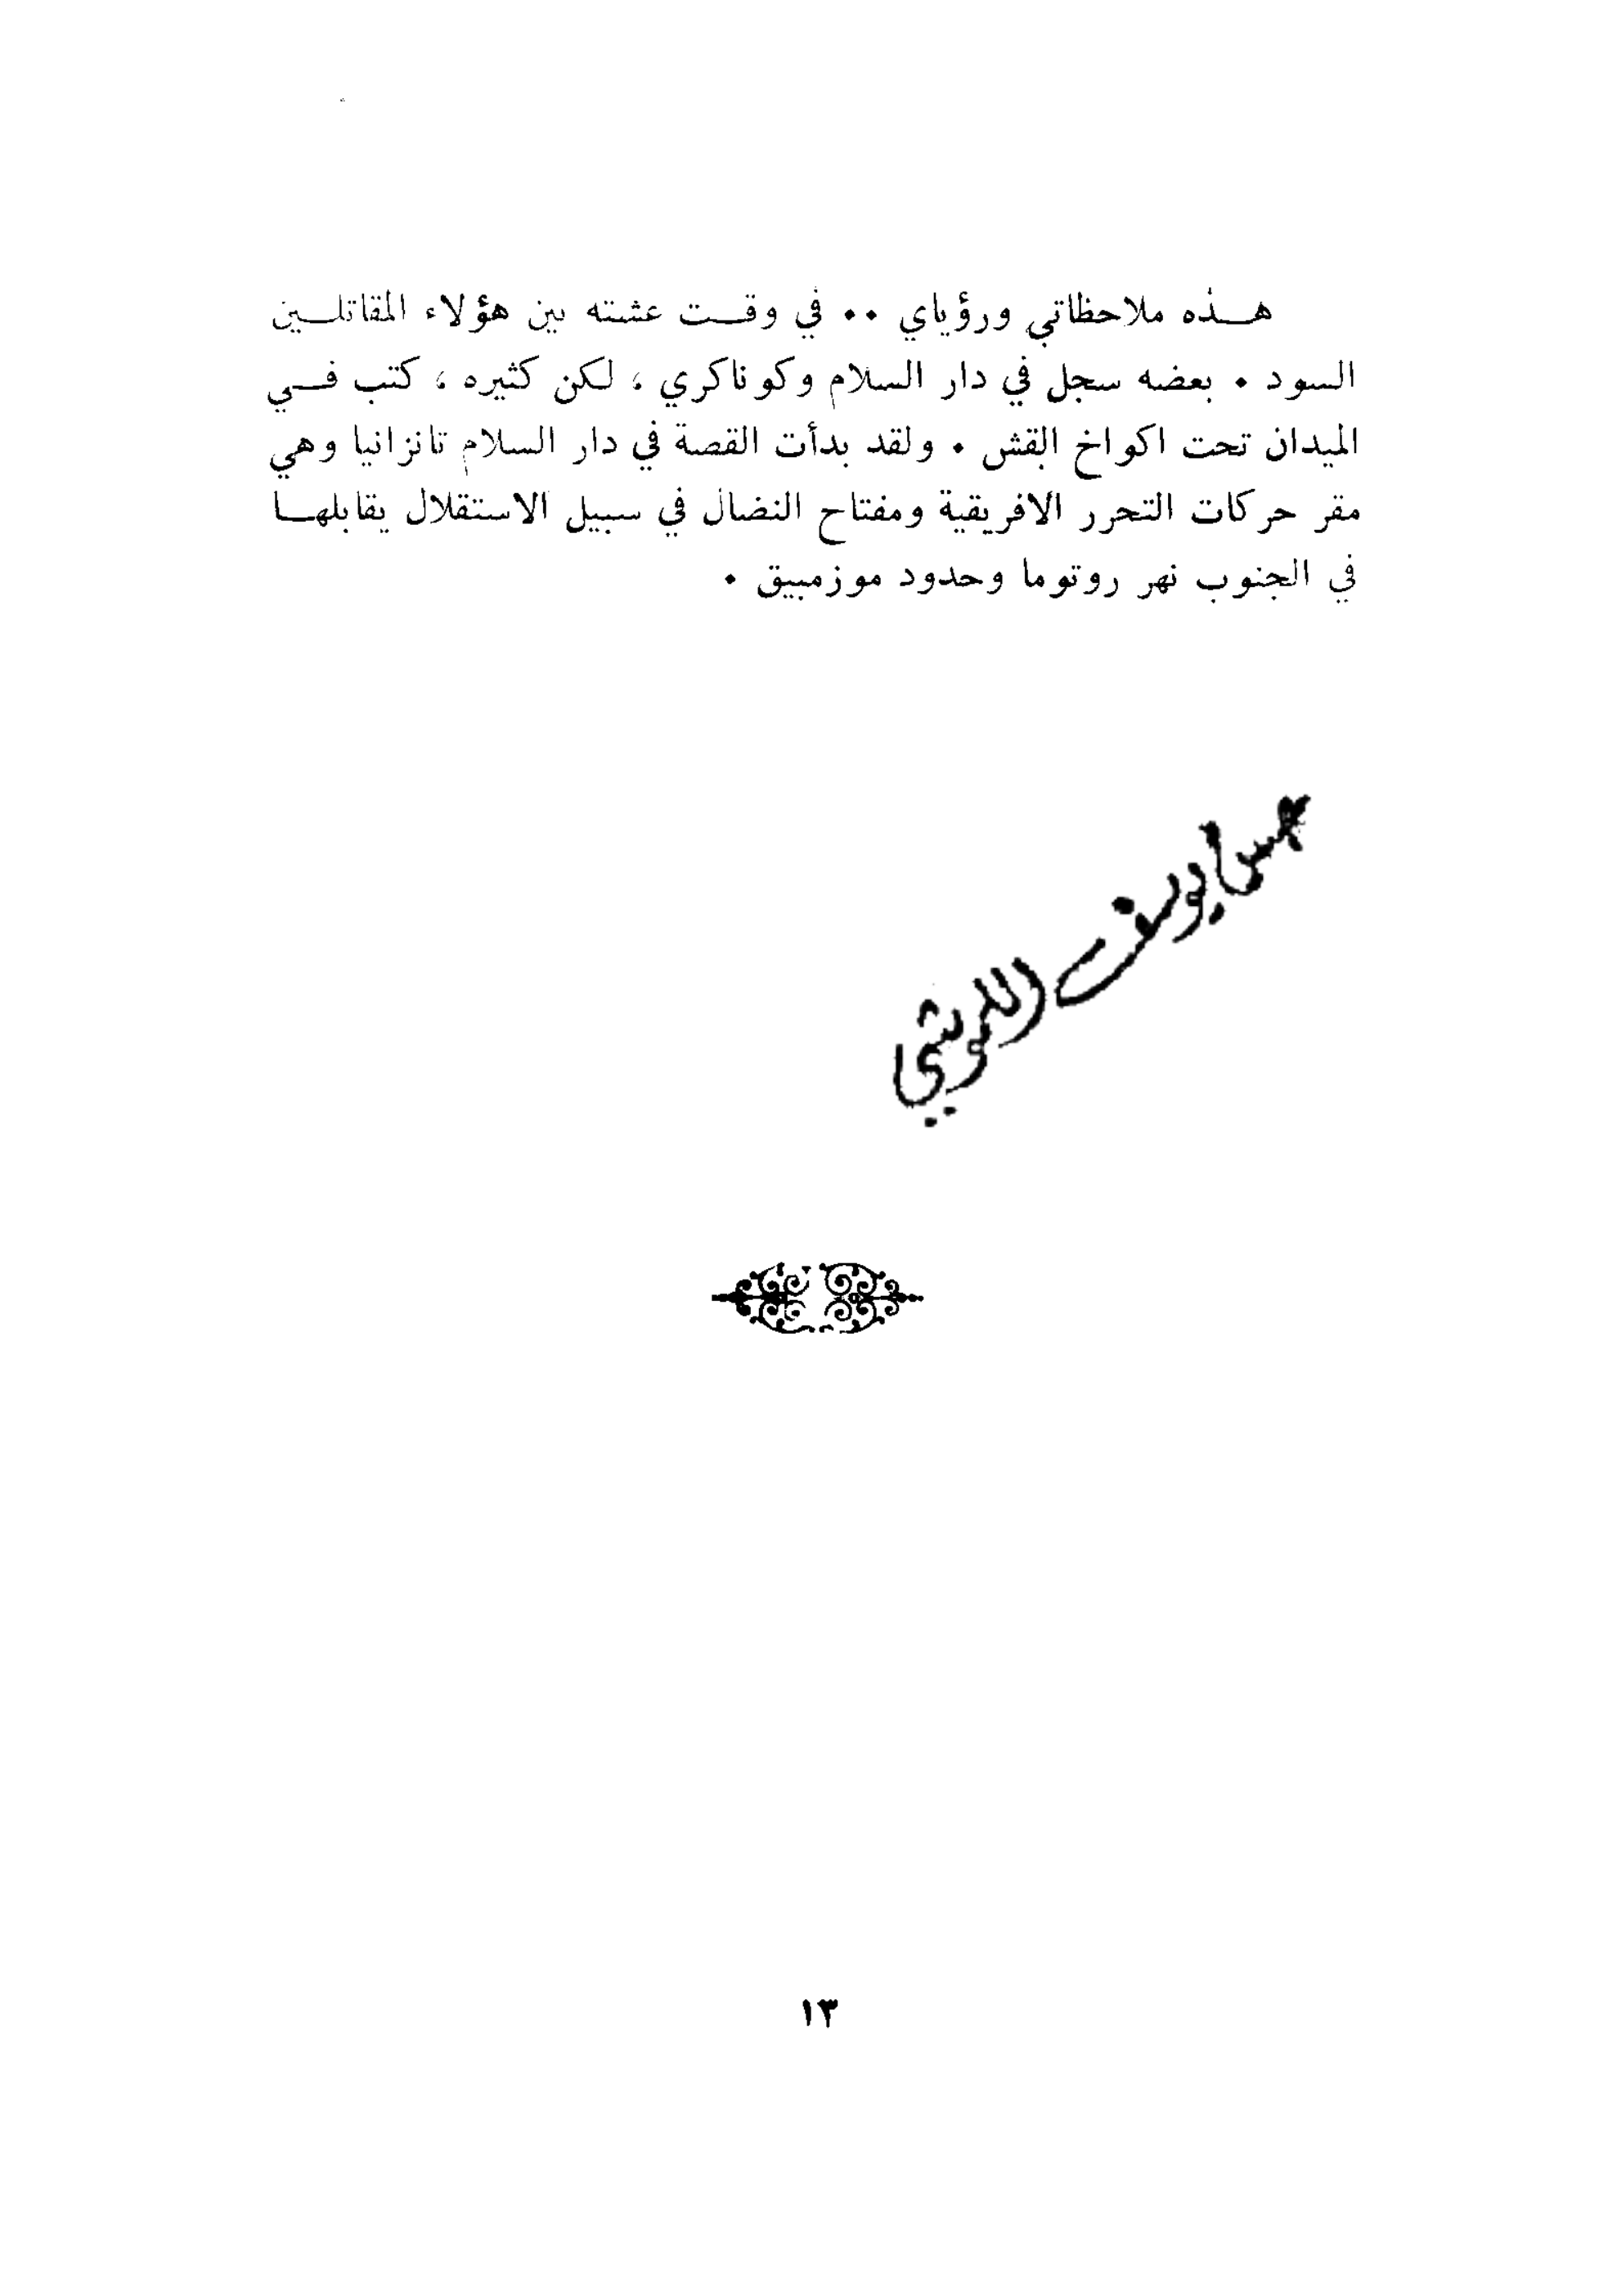 هـذه ملاحظاتي ورؤياي .. في وقـت عشته بين هؤلاء المقاتلـين
السود . بعضه سجل في دار السلام وكوناكري ، لكن كثيره ، كتب فـي
الميدان تحت اكواخ القش . ولقد بدأت القصة في دار السلام تانزانيا وهي
مقر حركات التحرر الافريقية ومفتاح النضال في سبيل الاستقلال يقابلهـا
في الجنوب نهر روتوما وحدود موزمبيق .
يوسف
١٣